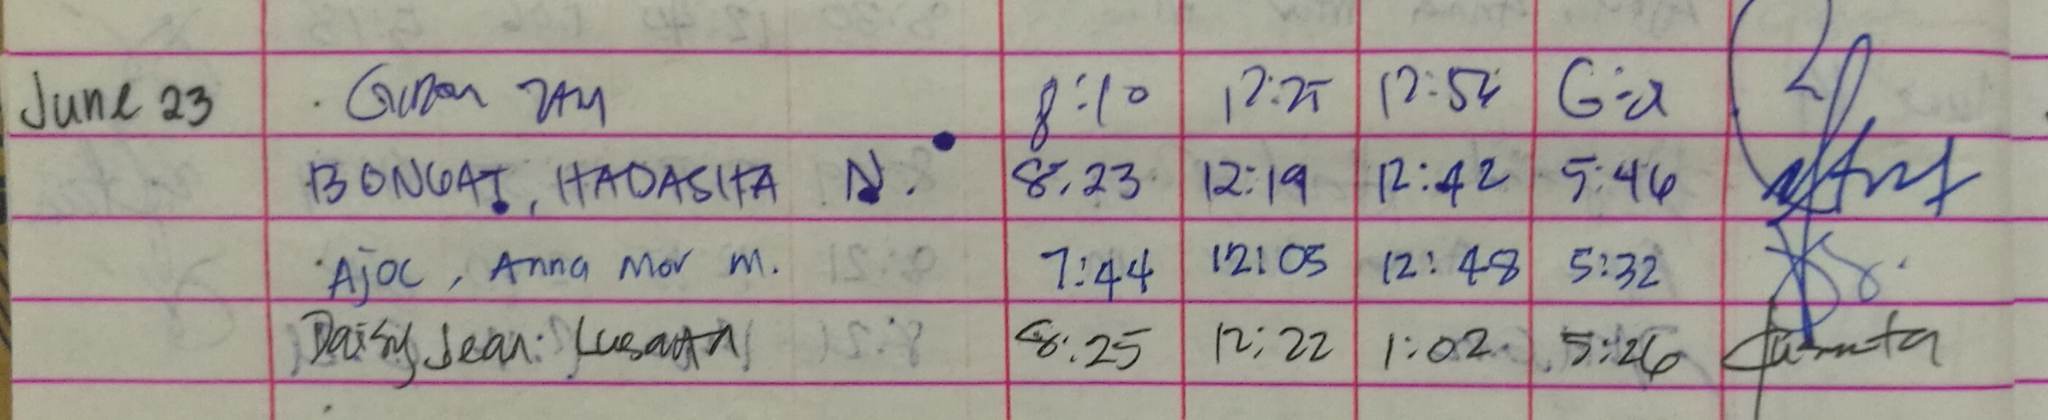 June 23 8:10 12:25 12:54
BONGAT, HADASHA N. 8:23 12:19 12:42 5:46
Ajoc, Anna Mor m. 7:44 12:05 12:48 5:32
Daisy Jean 8:25 12:22 1:02 5:26